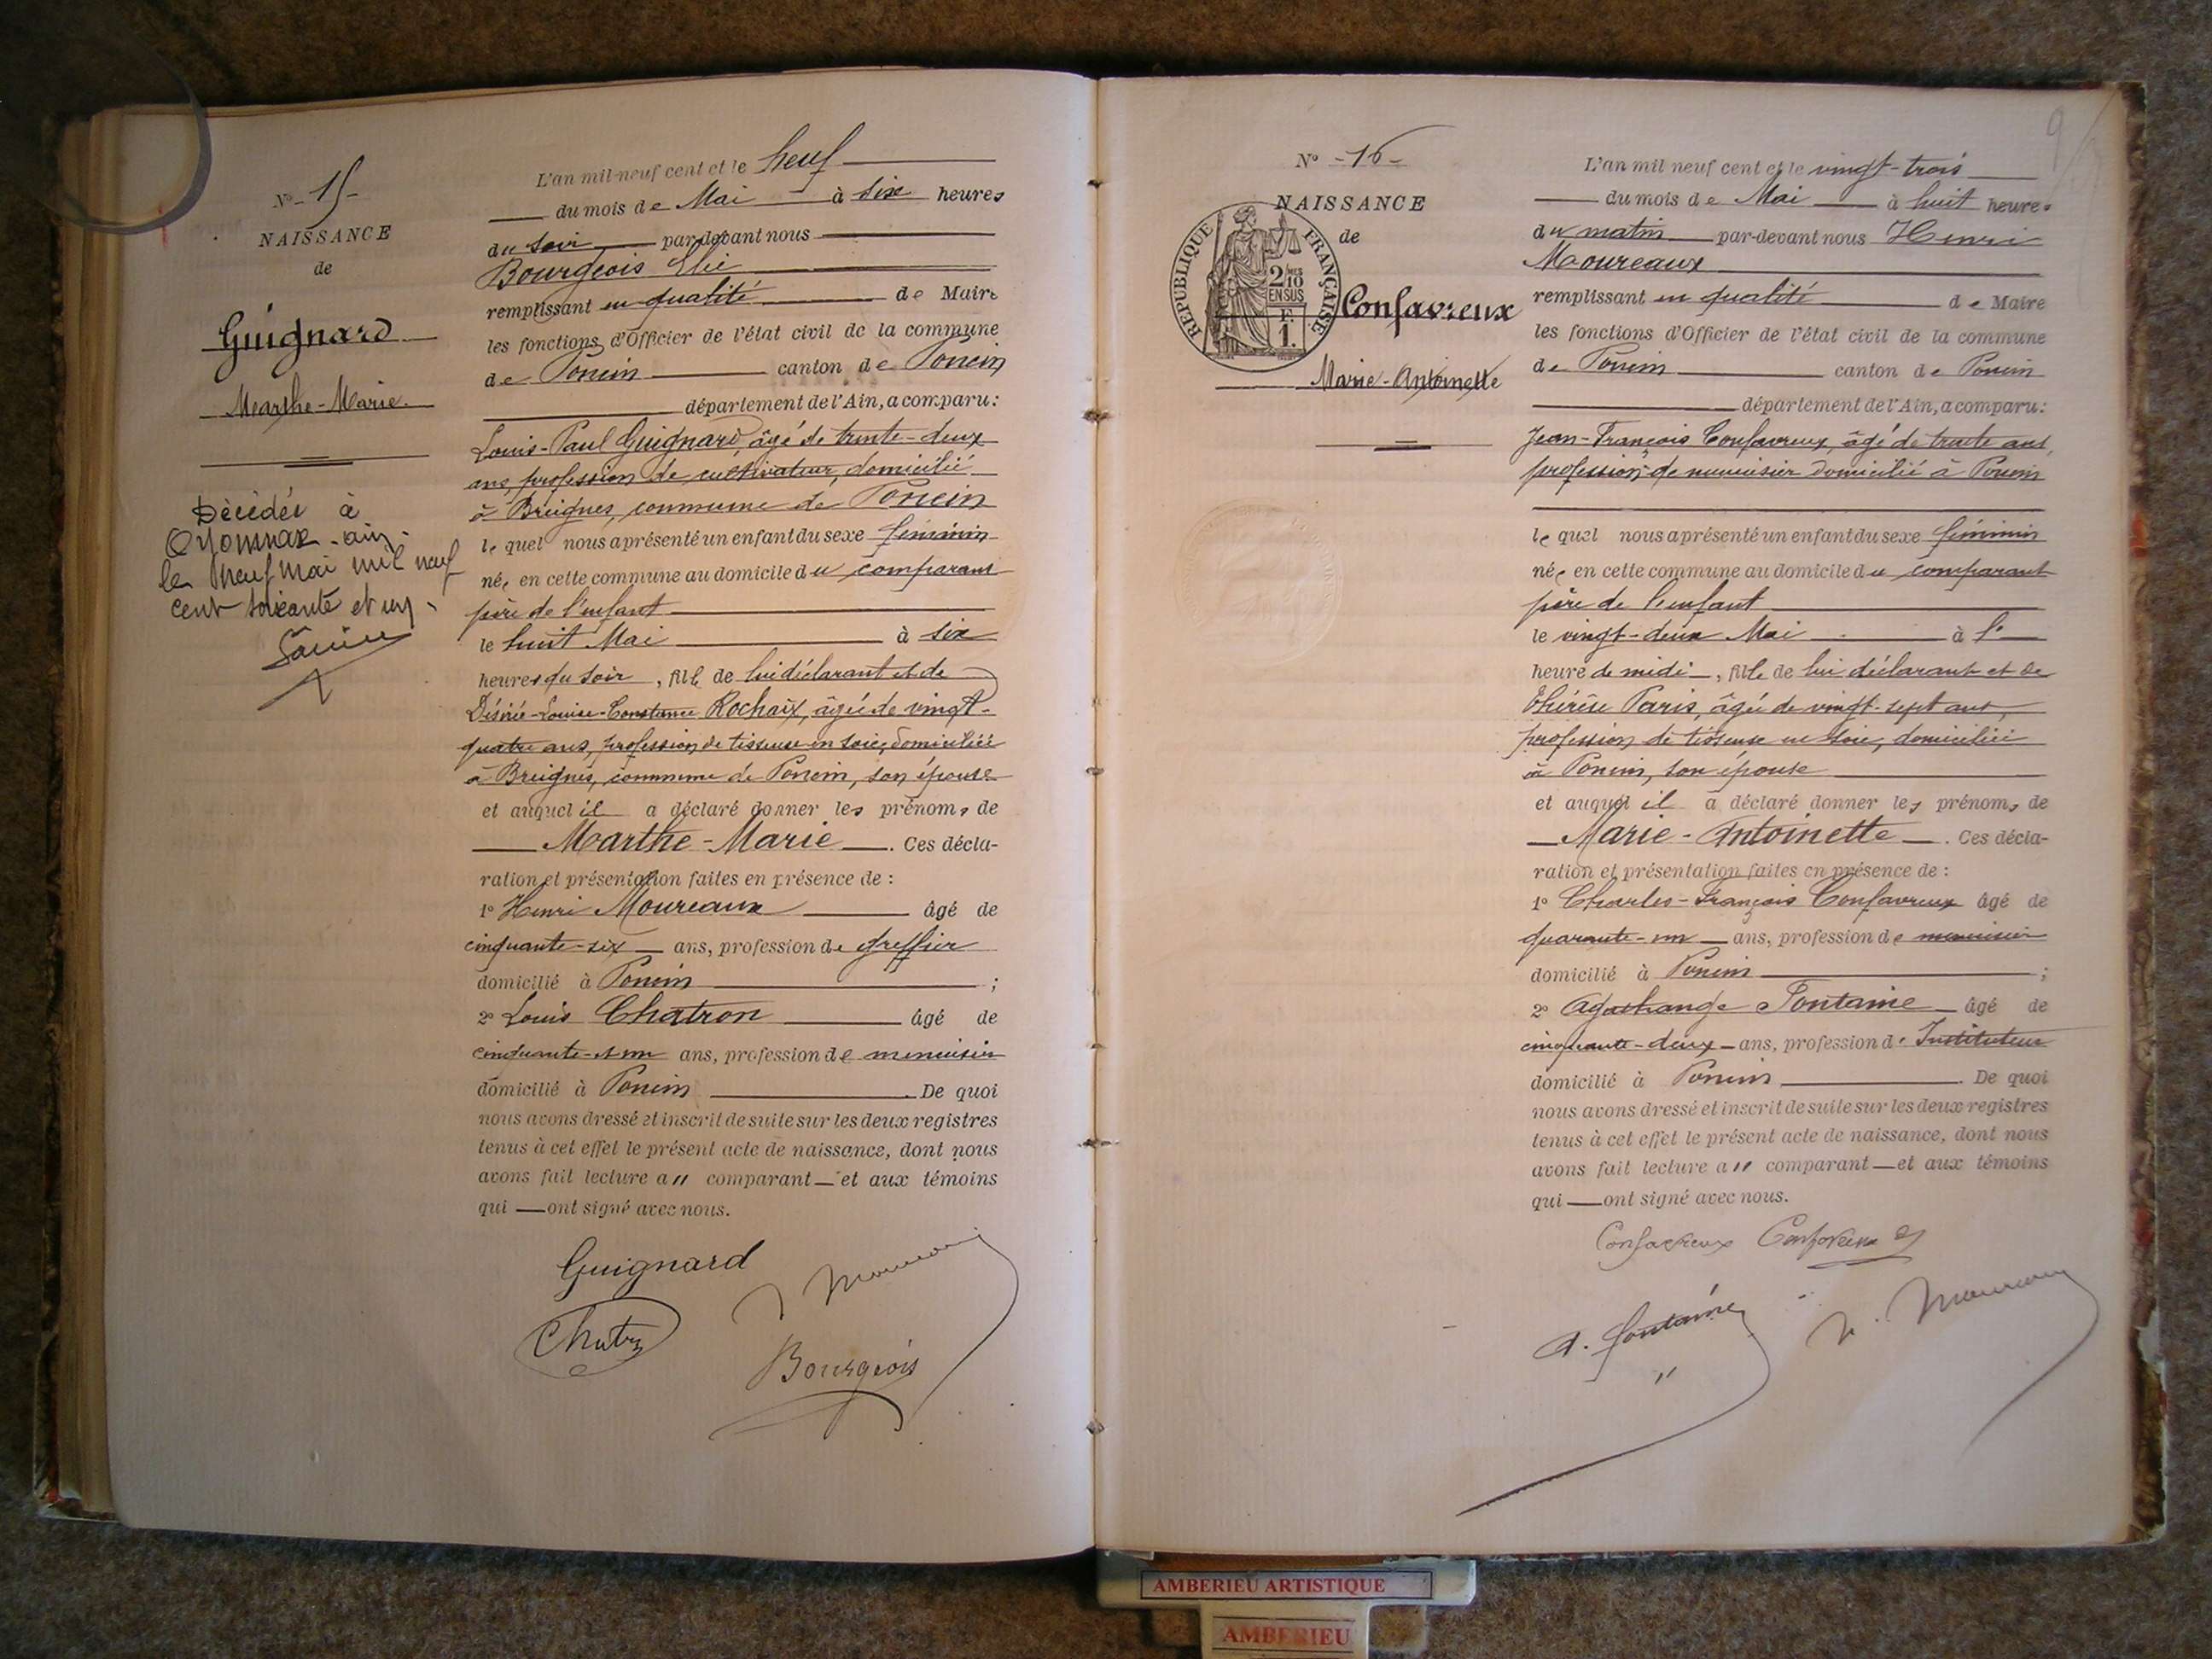 N° 15
NAISSANCE
de
Guignard
Marthe-Marie.
Décédée à
Oyonnax - ain -
le neuf mai mil neuf
cent soixante et un -
L'an mil neuf cent et le neuf
du mois de Mai à six heures
du soir par-devant nous
Bourgeois Elie
remplissant en qualité de Maire
les fonctions d'Officier de l'état civil de la commune
de Poncin canton de Poncin
département de l'Ain, a comparu:
Louis-Paul Guignard, âgé de trente-deux
ans, profession de cultivateur, domicilié
à Breignes, commune de Poncin
lequel nous a présenté un enfant du sexe féminin
née en cette commune au domicile du comparant
père de l'enfant
le huit Mai à six
heures du soir, fille de lui déclarant et de
Désirée-Louise-Constance Rochaix, âgée de vingt-
quatre ans, profession de tisseuse en soie, domiciliée
à Breignes, commune de Poncin, son épouse
et auquel il a déclaré donner les prénoms de
Marthe-Marie. Ces décla-
ration et présentation faites en présence de :
1° Henri Moureaux âgé de
cinquante-six ans, profession de greffier
domicilié à Poncin ;
2° Louis Chatron âgé de
cinquante-et-un ans, profession de menuisier
domicilié à Poncin. De quoi
nous avons dressé et inscrit de suite sur les deux registres
tenus à cet effet le présent acte de naissance, dont nous
avons fait lecture a" comparant et aux témoins
qui ont signé avec nous.
Guignard
Bourgeois
N° -16-
NAISSANCE
de
RÉPUBLIQUE FRANÇAISE
2/10 EN SUS
F. 1.
Confavreux
Marie-Antoinette
9
L'an mil neuf cent et le vingt-trois
du mois de Mai à huit heures
du matin par-devant nous Henri
Moureaux
remplissant en qualité de Maire
les fonctions d'Officier de l'état civil de la commune
de Poncin canton de Poncin
département de l'Ain, a comparu:
Jean-François Confavreux, âgé de trente ans,
profession de menuisier domicilié à Poncin
lequel nous a présenté un enfant du sexe féminin
née en cette commune au domicile du comparant
père de l'enfant
le vingt-deux Mai à
heure de midi, fille de lui déclarant et de
Thérèse Paris, âgée de vingt-sept ans,
profession de tisseuse en soie, domiciliée
à Poncin, son épouse
et auquel il a déclaré donner les prénoms de
Marie-Antoinette. Ces décla-
ration et présentation faites en présence de :
1° Charles-François Confavreux âgé de
quarante-un ans, profession de menuisier
domicilié à Poncin ;
2° Agathange Fontaine âgé de
cinquante-deux ans, profession d' Instituteur
domicilié à Poncin. De quoi
nous avons dressé et inscrit de suite sur les deux registres
tenus à cet effet le présent acte de naissance, dont nous
avons fait lecture a" comparant et aux témoins
qui ont signé avec nous.
Confavreux Confavreux
A. Fontaine
AMBERIEU ARTISTIQUE
AMBERIEU